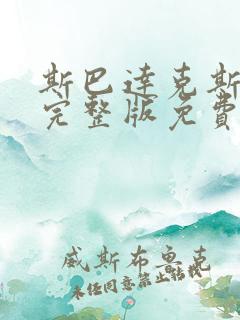 斯巴達克斯
完整版免費
威斯布魯克
未经同意禁止转载